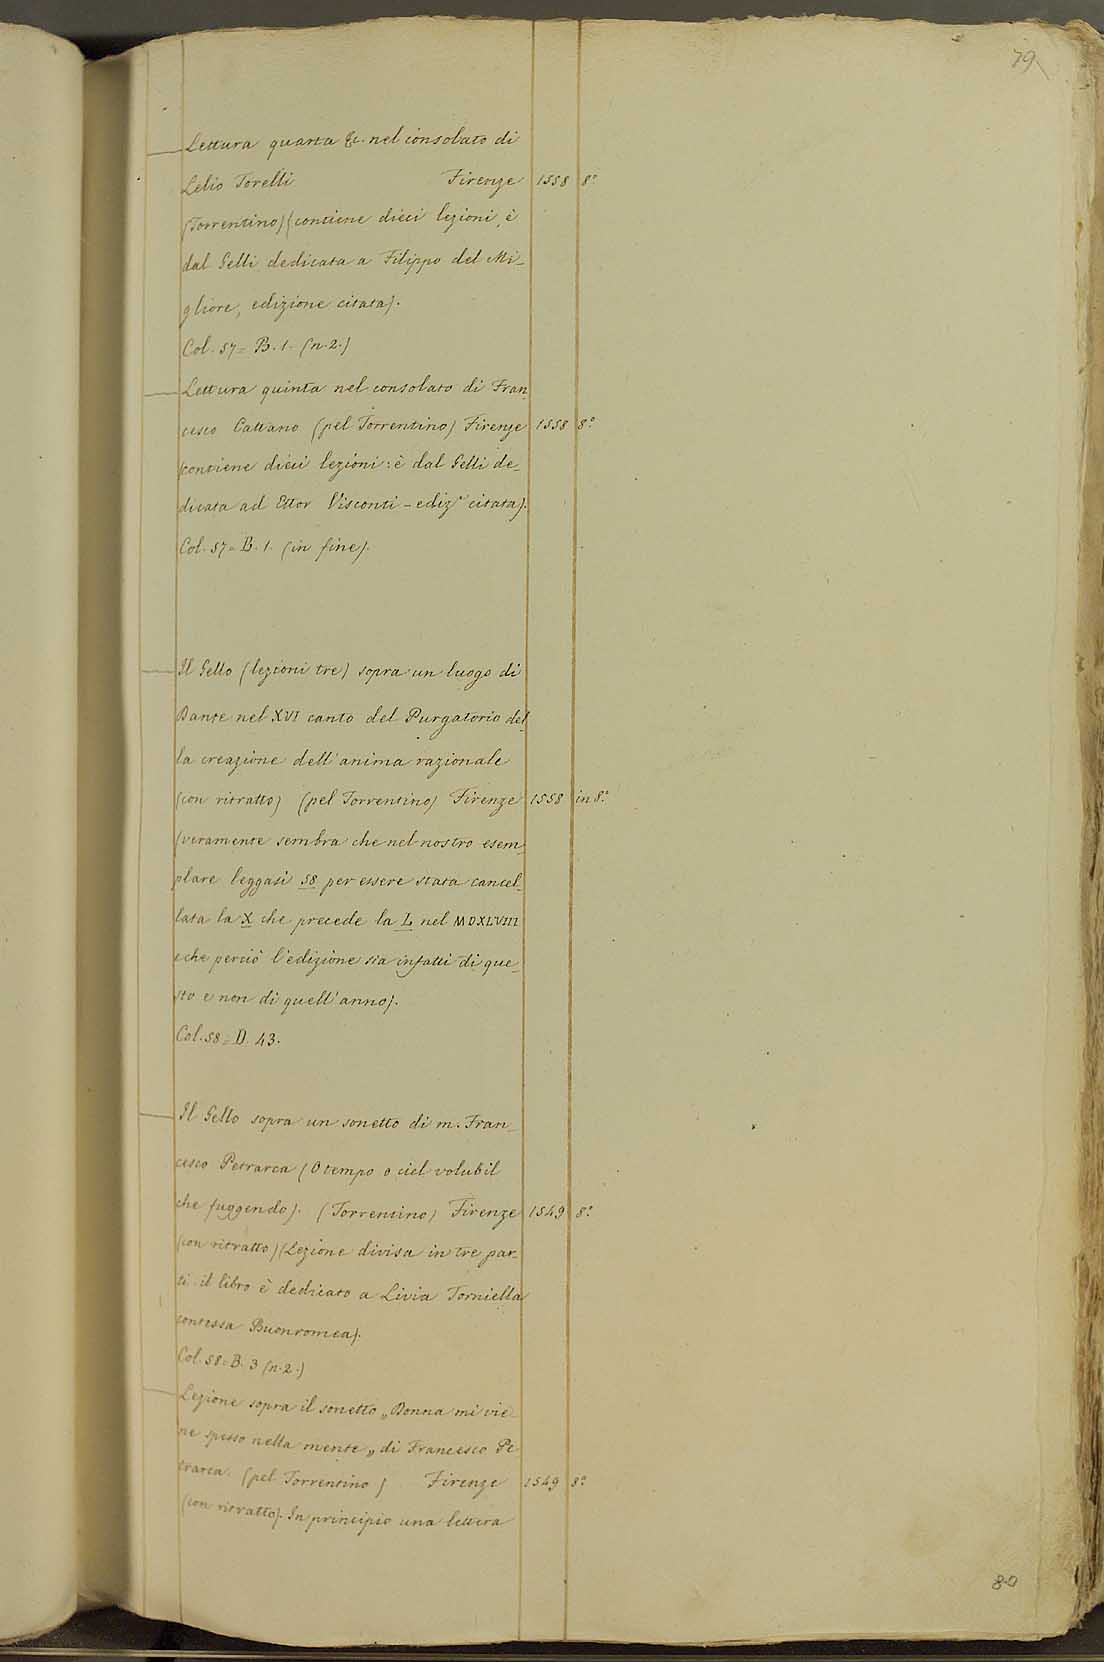 79
— Lettura quarta &c. nel consolato di
Lelio Torelli Firenze 1558 8.°
(Torrentino) (contiene dieci lezioni, è
dal Gelli dedicata a Filippo del Mi-
gliore, edizione citata).
Col. 57 = B. 1. (n. 2.)
— Lettura quinta nel consolato di Fran-
cesco Cattano (pel Torrentino) Firenze 1558 8.°
(contiene dieci lezioni: è dal Gelli de-
dicata ad Ettor Visconti - ediz.e citata).
Col. 57 = B. 1. (in fine).
— Il Gello (lezioni tre) sopra un luogo di
Dante nel XVI canto del Purgatorio del-
la creazione dell'anima razionale
(con ritratto) (pel Torrentino) Firenze 1558 in 8.°
(veramente sembra che nel nostro esem-
plare leggasi 58 per essere stata cancel-
lata la X che precede la L nel MDXLVIII
e che perciò l'edizione sia infatti di que-
sto e non di quell'anno).
Col. 58 = D. 43.
— Il Gello sopra un sonetto di m. Fran-
cesco Petrarca (O tempo o ciel volubil
che fuggendo). (Torrentino) Firenze 1549 8.°
(con ritratto) (Lezione divisa in tre par-
ti. il libro è dedicato a Livia Torniella
contessa Buonromea).
Col. 58 = B. 3 (n. 2.)
— Lezione sopra il sonetto „Donna mi vie-
ne spesso nella mente„ di Francesco Pe-
trarca. (pel Torrentino) Firenze 1549 8.°
(con ritratto). In principio una lettera
80